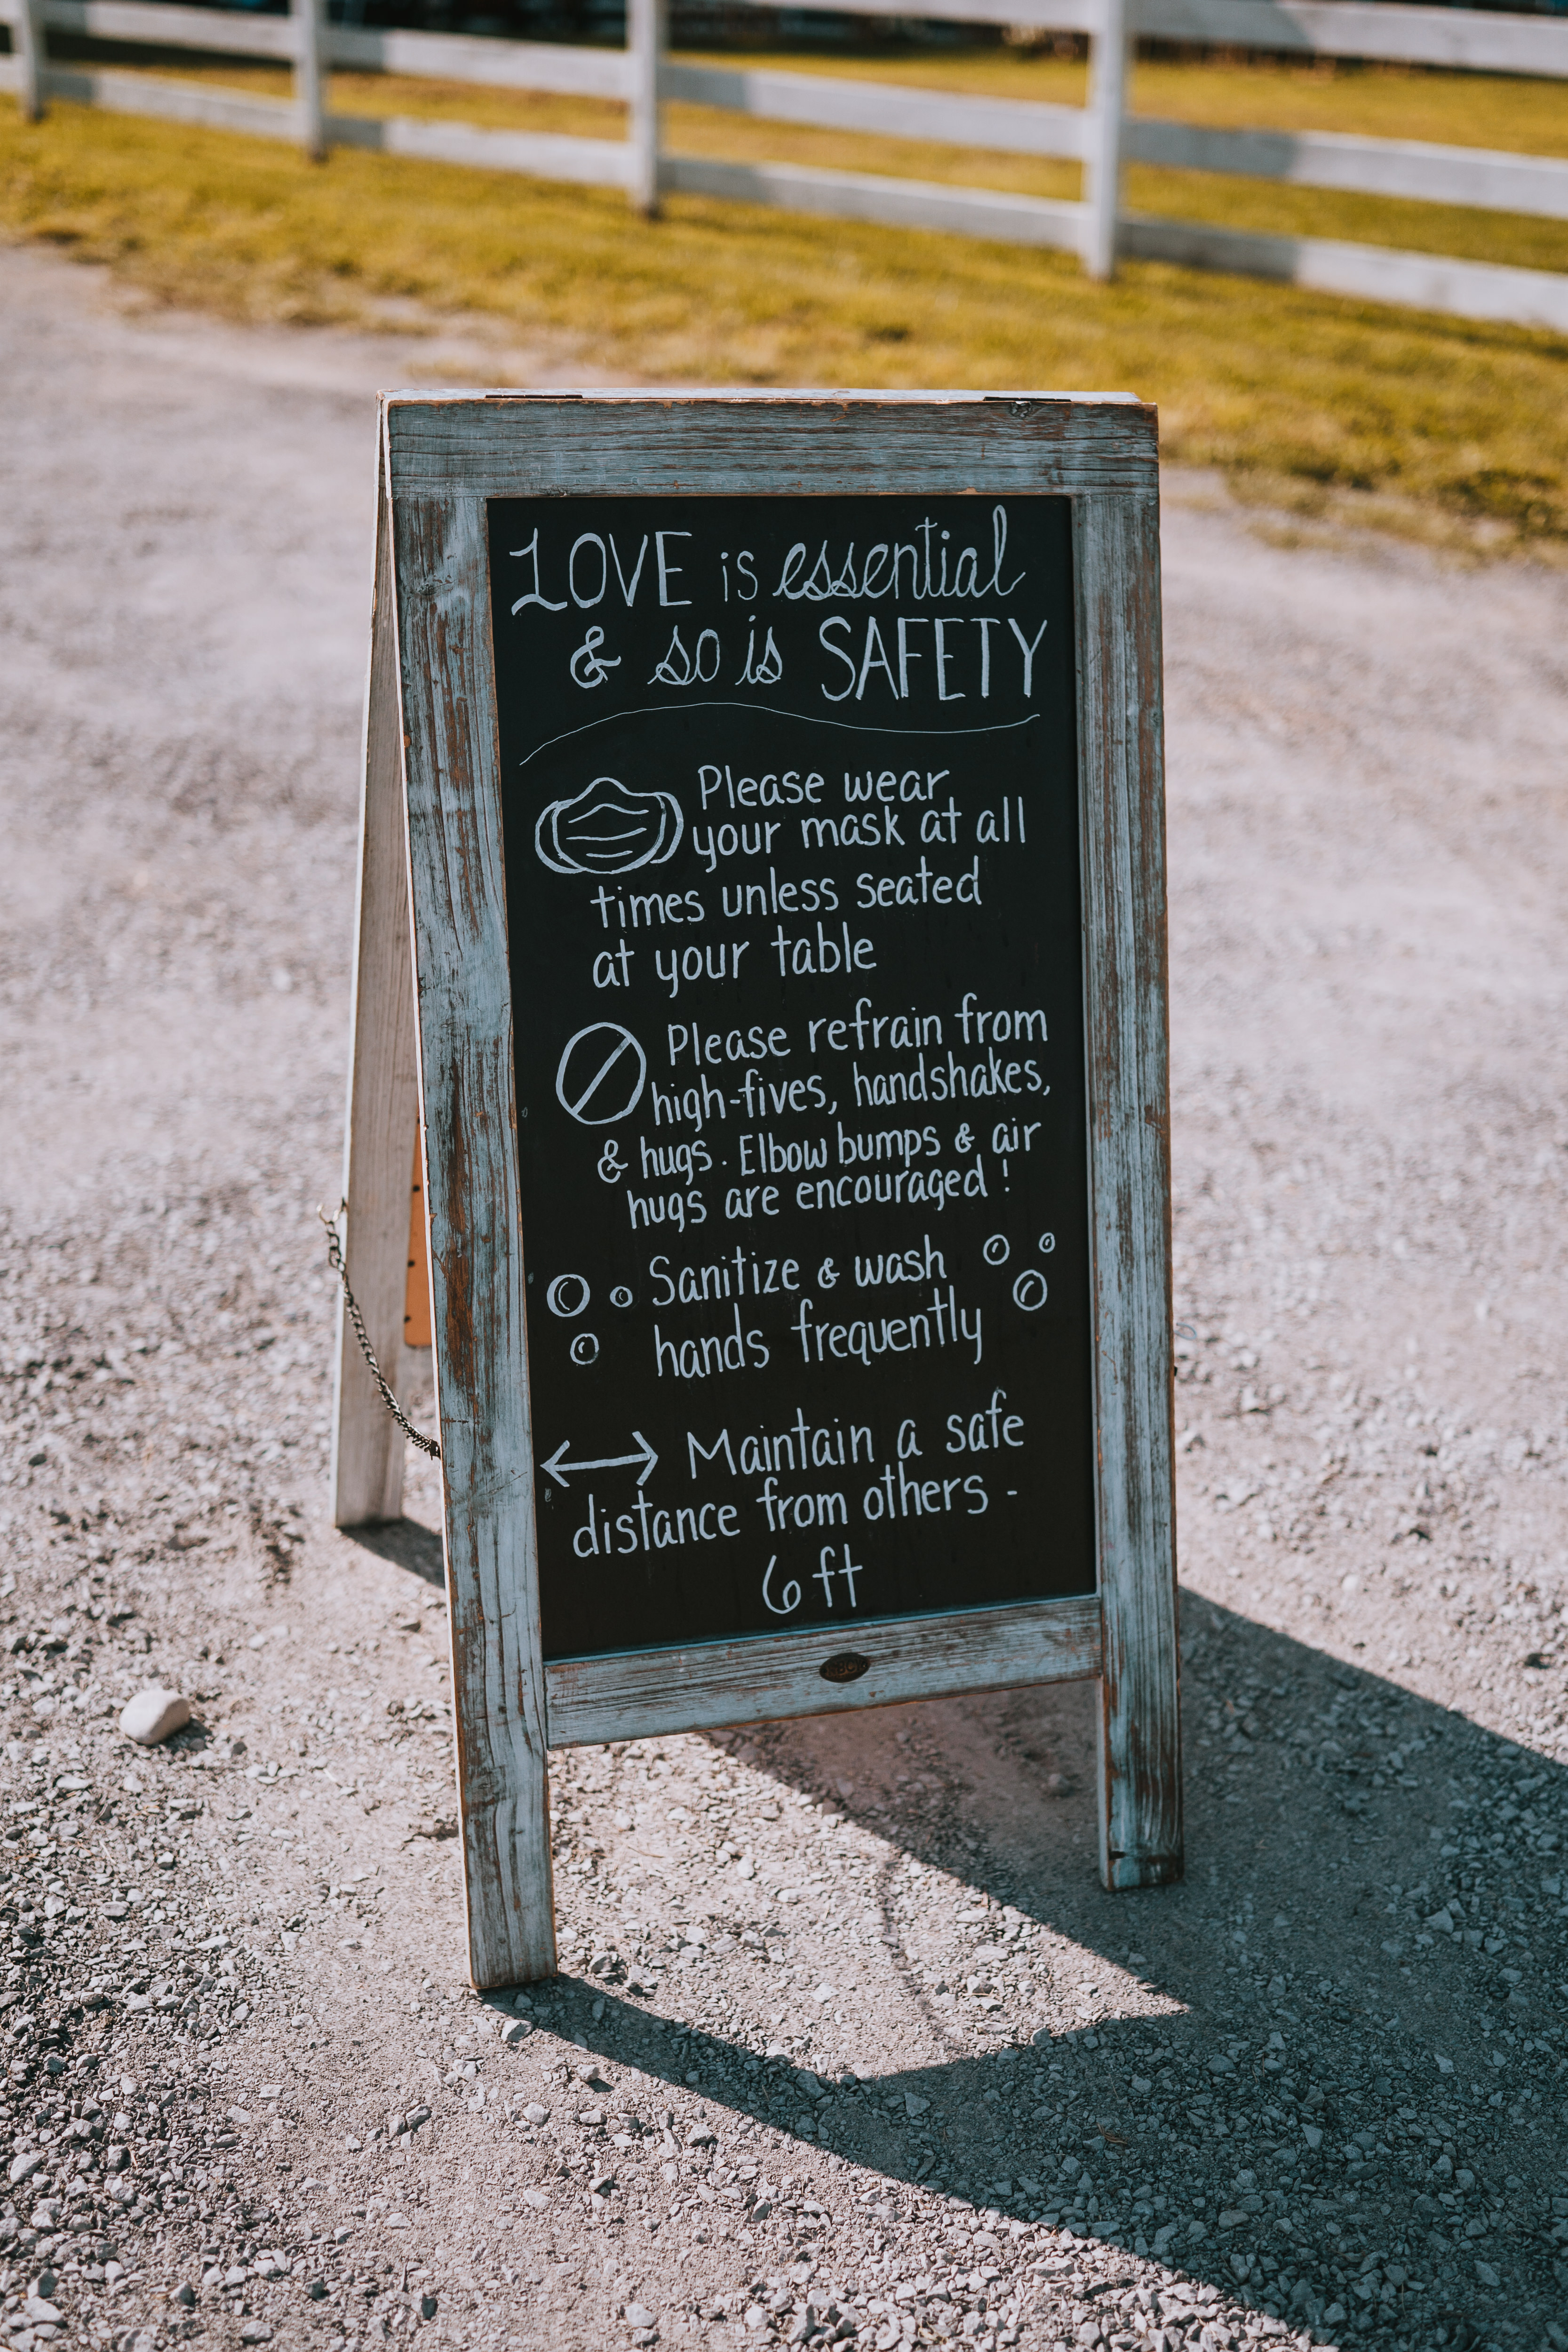 LOVE is essential
& so is SAFETY
Please wear
your mask at all
times unless seated
at your table
Please refrain from
high-fives, handshakes,
& hugs. Elbow bumps & air
hugs are encouraged!
Sanitize & wash
hands frequently
Maintain a safe
distance from others -
6ft